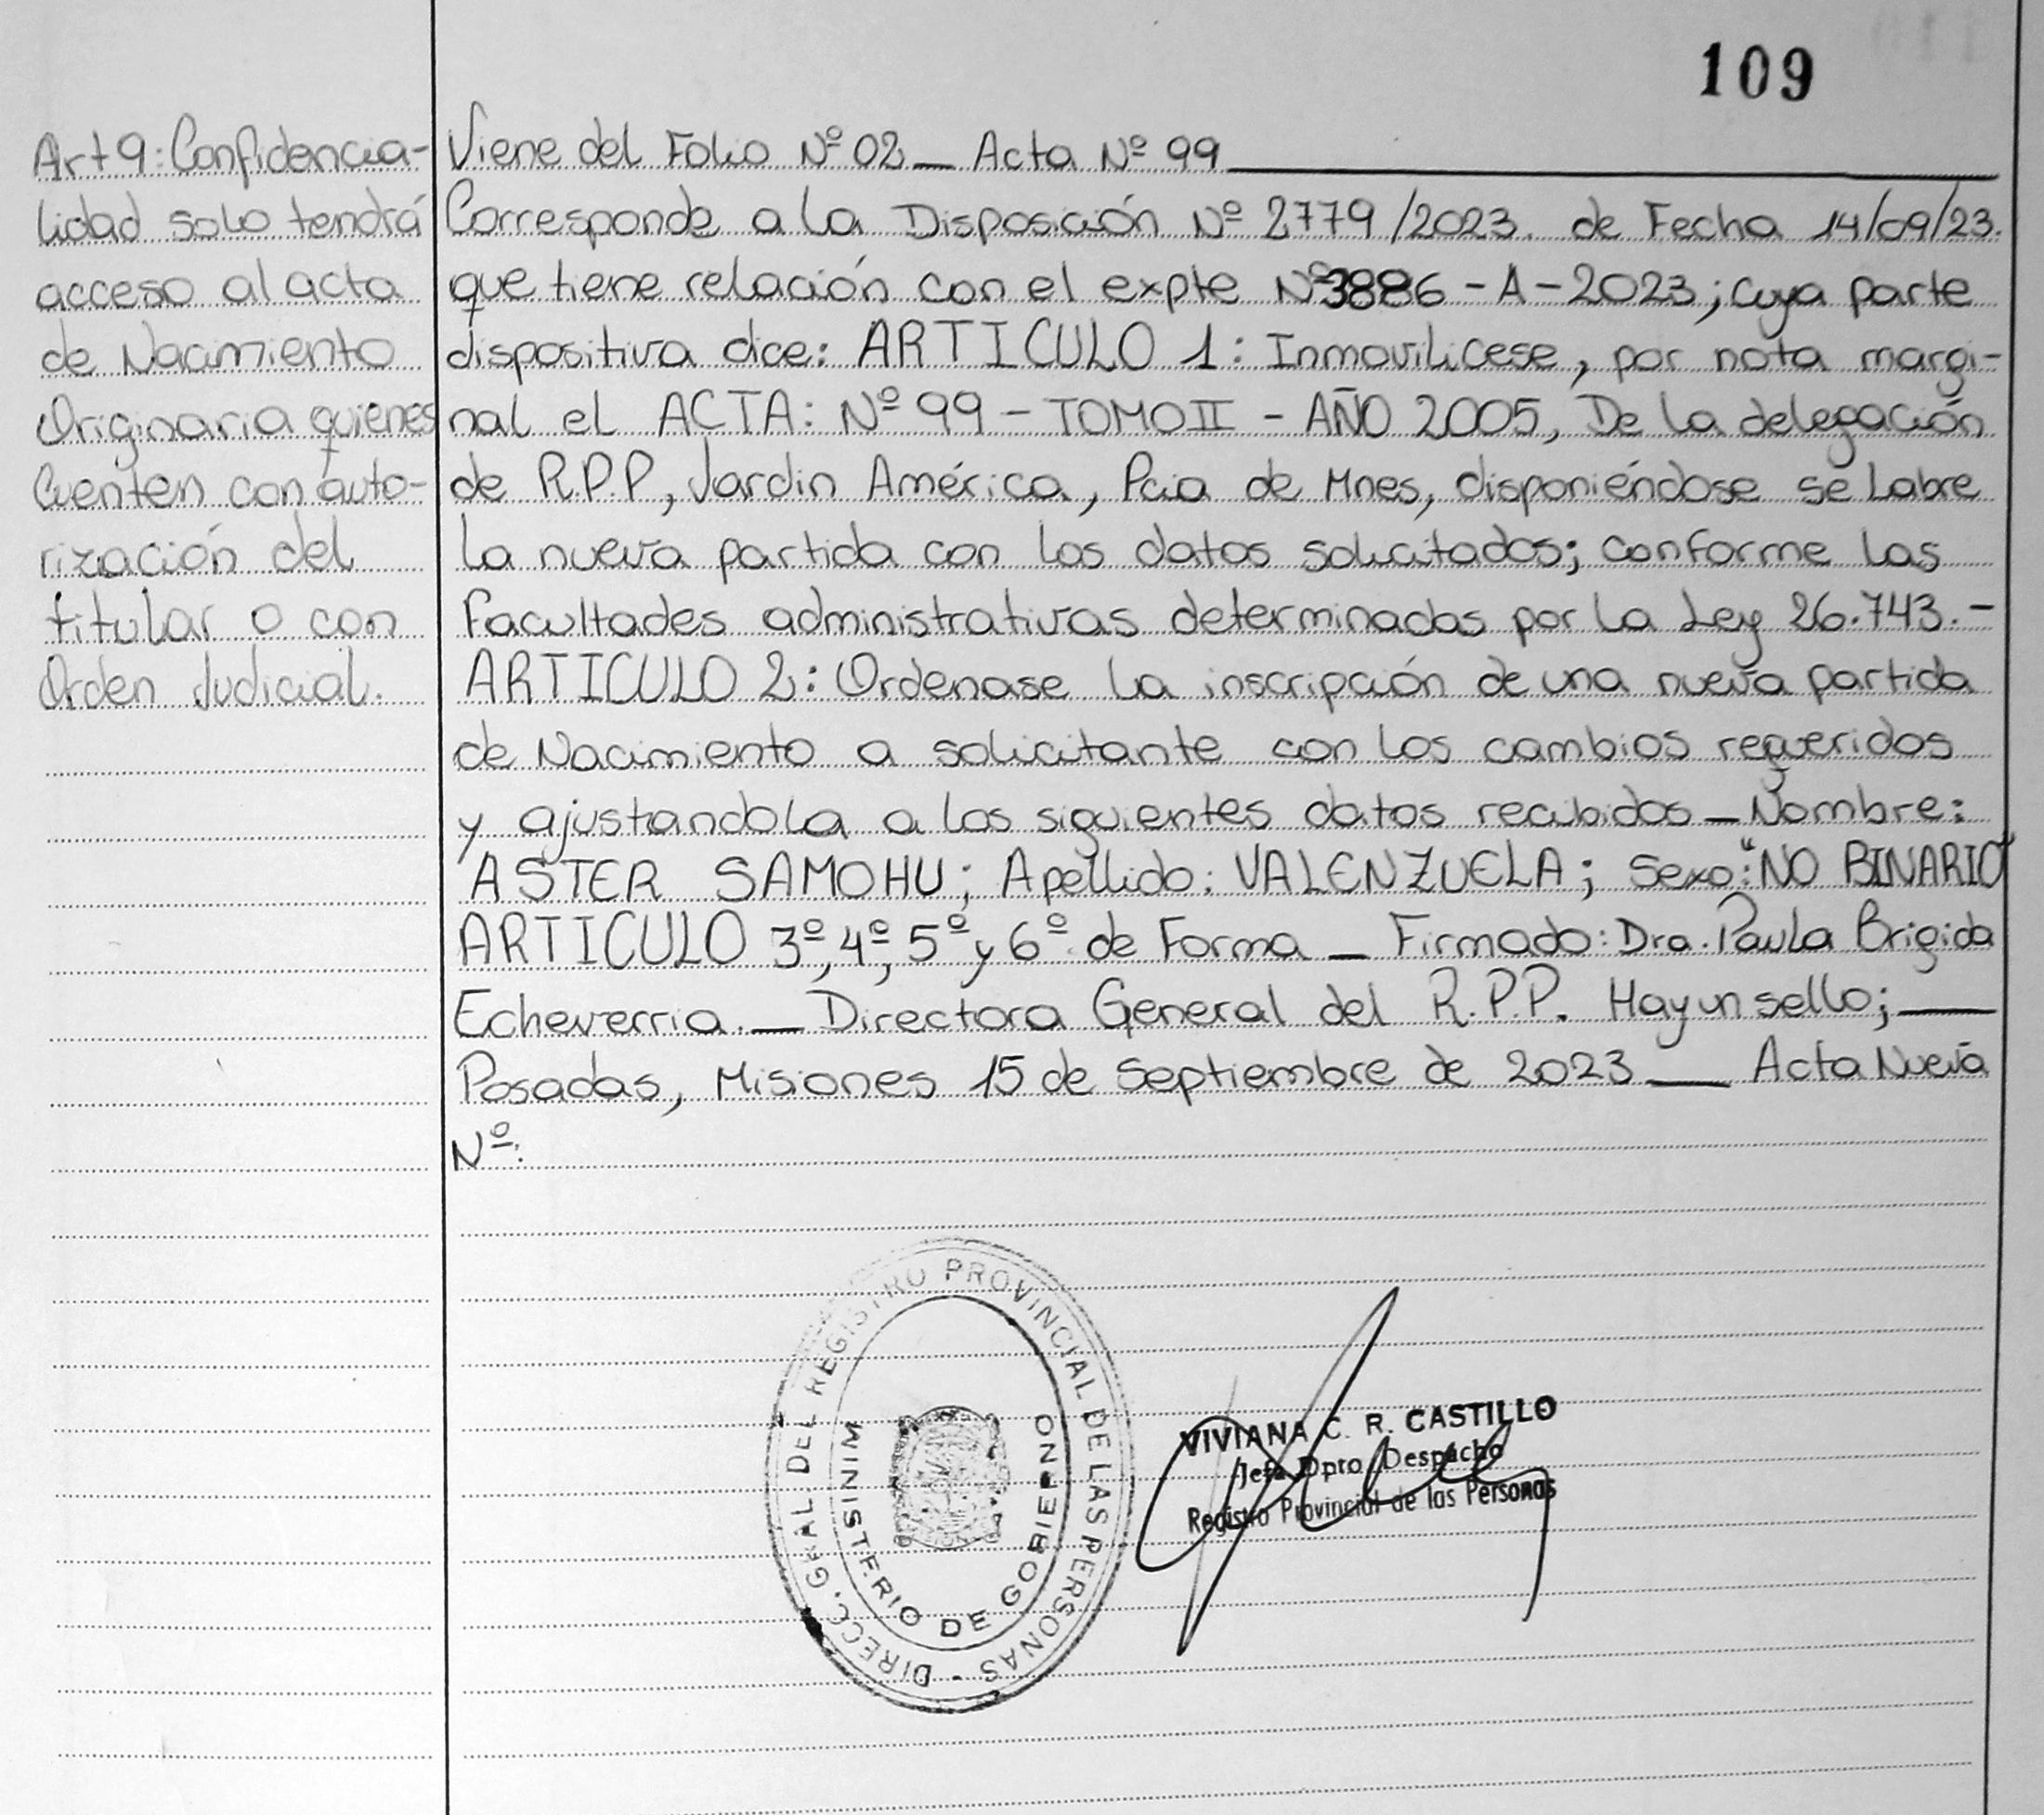 109
Art 9: Confidencia-
lidad solo tendrá
acceso al acta
de Nacimiento
Originaria quienes
Cuenten con auto-
rización del
titular o con
Orden Judicial.
Viene del Folio Nº 02 _ Acta Nº 99
Corresponde a la Disposición Nº 2779/2023. de Fecha 14/09/23.
que tiene relación con el expte Nº 3886 - A - 2023; cuya parte
dispositiva dice: ARTICULO 1: Inmovilicese, por nota margi-
nal el ACTA: Nº 99 - TOMO II - AÑO 2005, De la delegación
de R.P.P, Jardin América, Pcia de Mnes, disponiéndose se Labre
La nueva partida con los datos solicitados; conforme las
Facultades administrativas determinadas por la Ley 26.743.-
ARTICULO 2: Ordenase la inscripción de una nueva partida
de Nacimiento a solicitante con los cambios requeridos
y ajustandola a los siguientes datos recibidos _ Nombre:
ASTER SAMOHU; Apellido: VALENZUELA; Sexo: "NO BINARIO"
ARTICULO 3º, 4º, 5º y 6º de Forma _ Firmado: Dra. Paula Brigida
Echeverria _ Directora General del R.P.P. Hay un sello; _
Posadas, Misiones 15 de Septiembre de 2023 _ Acta Nueva
Nº:
DIRECC. GRAL. DEL REGISTRO PROVINCIAL DE LAS PERSONAS -
MINISTERIO DE GOBIERNO
VIVIANA C. R. CASTILLO
Jefa Dpto Despacho
Registro Provincial de las Personas